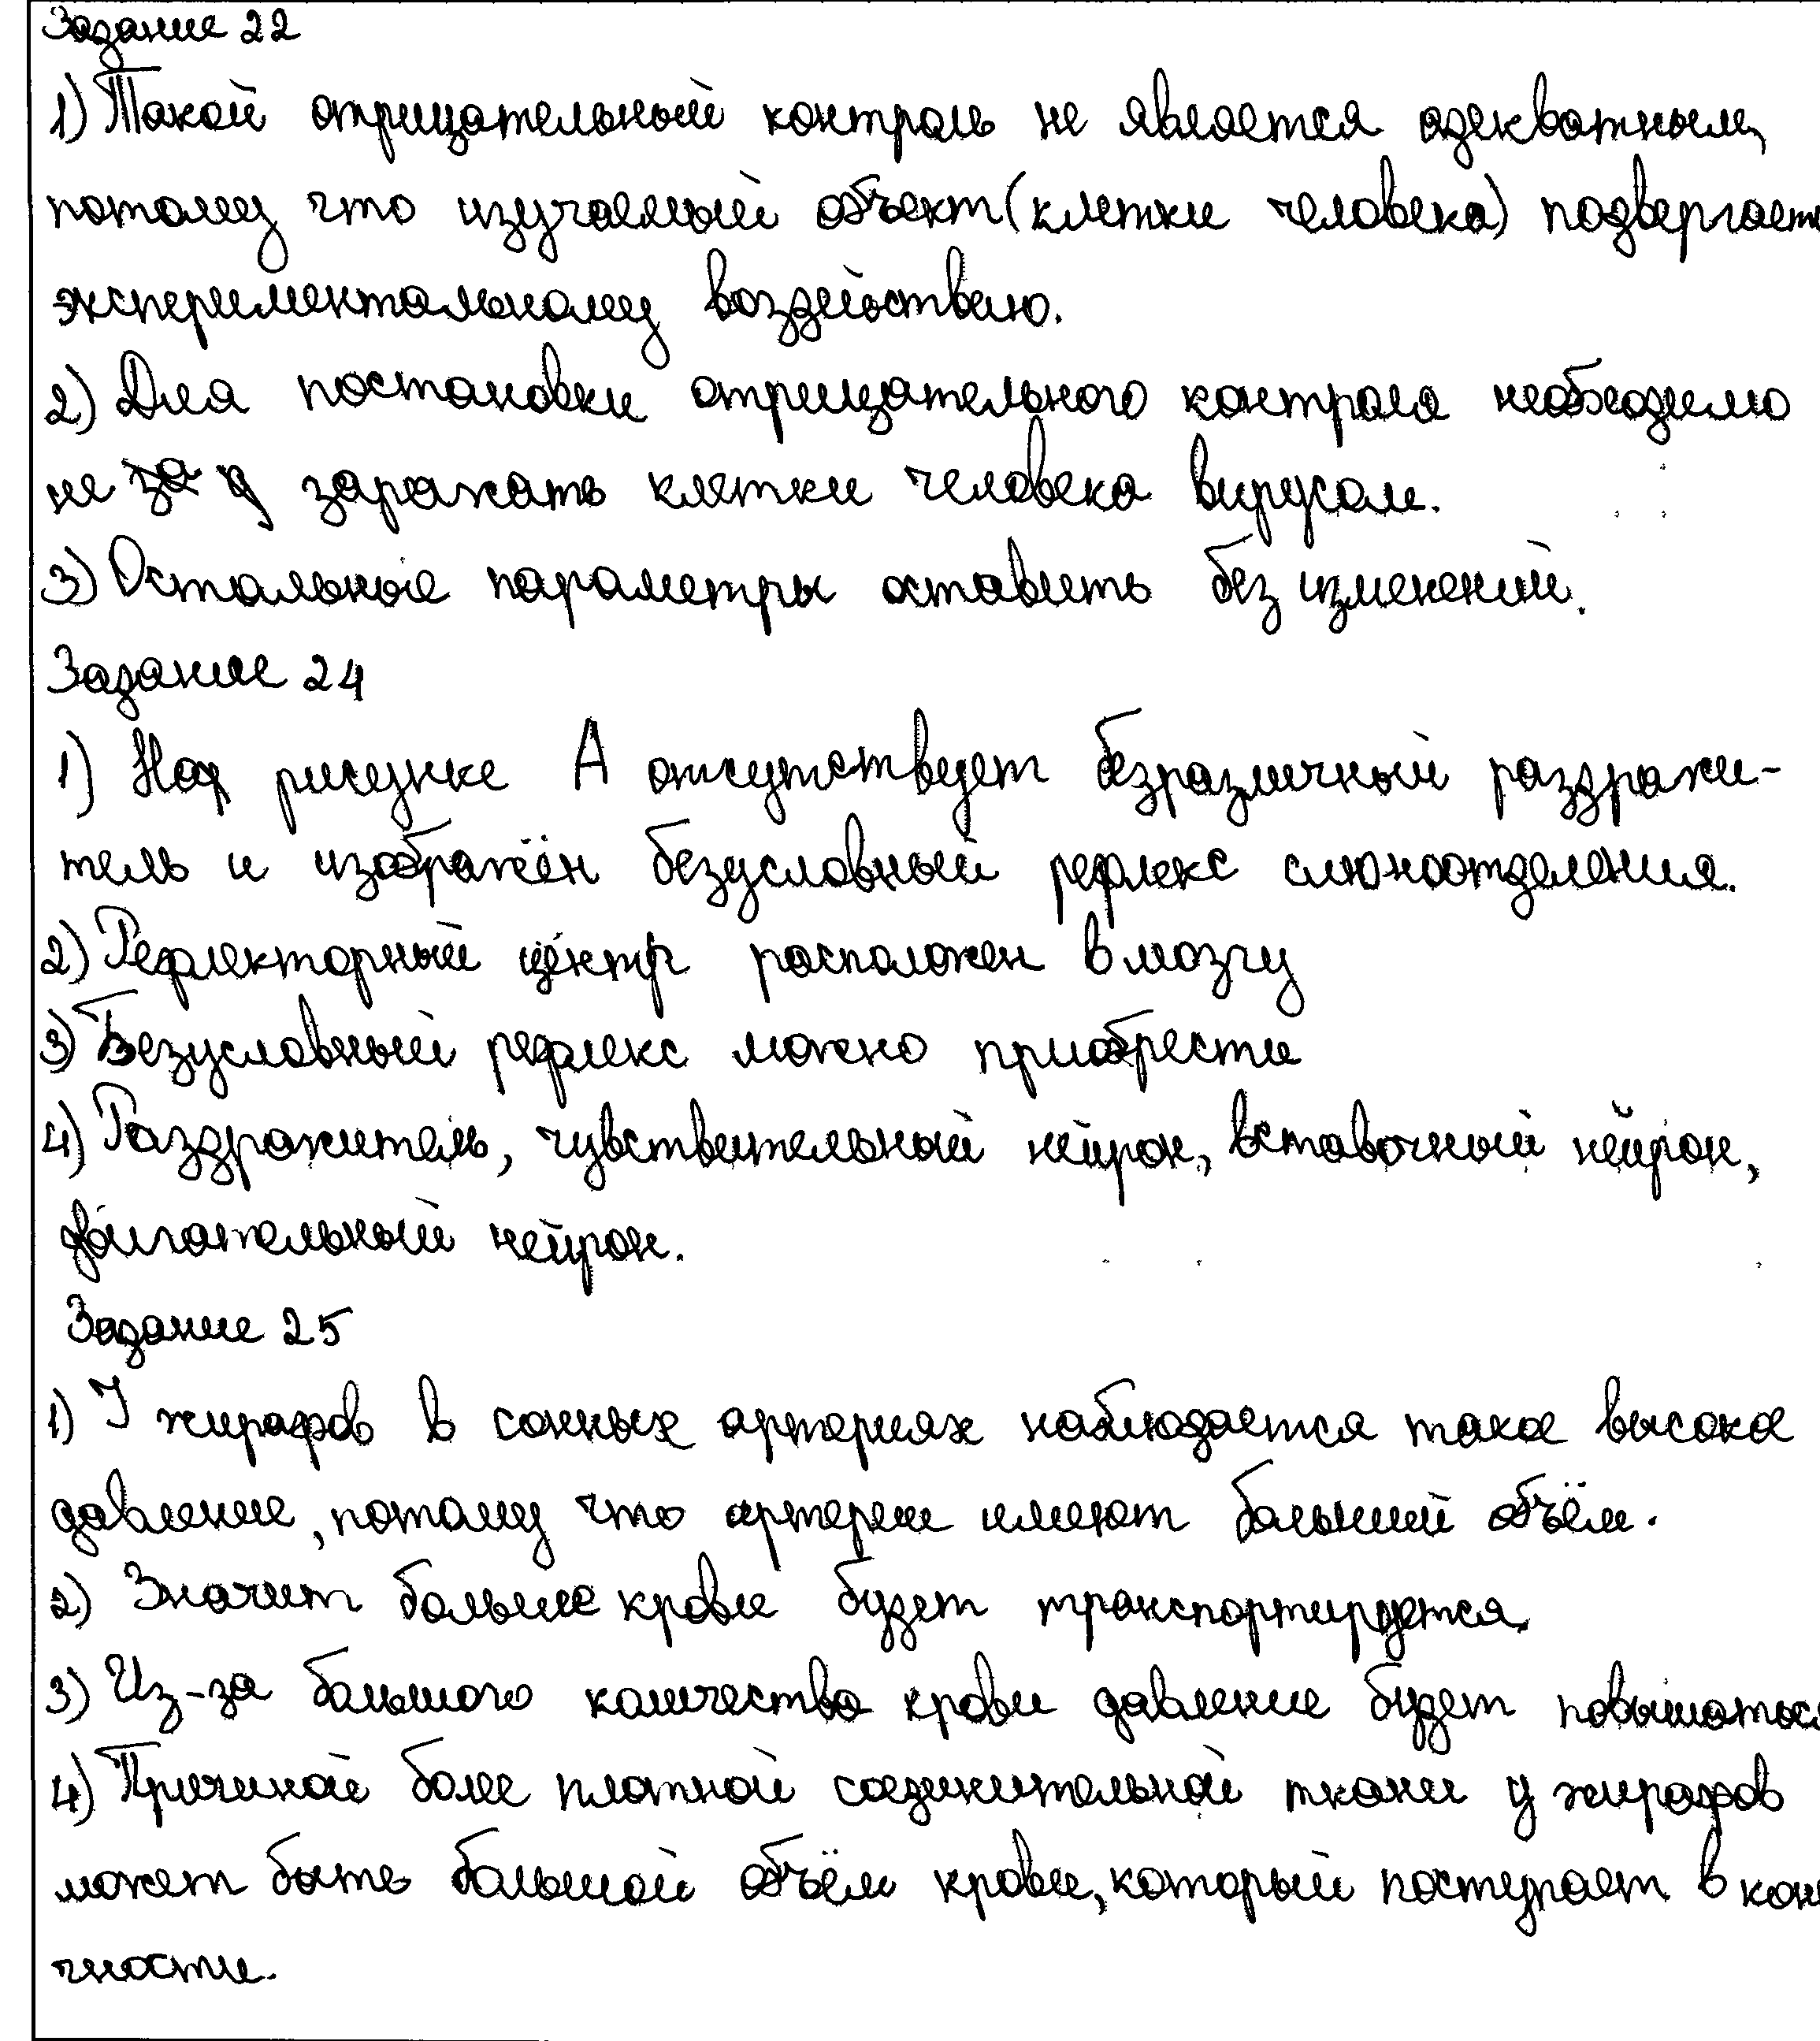 Задание 22
1) Такой отрицательный контроль не является адекватным,
потому что изучаемый объект (клетки человека) подвергаетс
экспериментальному воздействию.
2) Для постановки отрицательного контроля необходимо
не заражать клетки человека вирусом.
3) Остальные параметры оставить без изменений.
Задание 24
1) На рисунке А отсутствует безразличный раздражи-
тель и изображён безусловный рефлекс слюноотделения.
2) Рефлекторный центр расположен в мозгу
3) Безусловный рефлекс можно приобрести
4) Раздражитель, чувствительный нейрон, вставочный нейрон,
двигательный нейрон.
Задание 25
1) У жирафов в сонных артериях наблюдается такое высокое
давление, потому что артерии имеют больший объём.
2) Значит больше крови будет транспортируется.
3) Из-за большого количества крови давление будет повышатьс
4) Причиной более плотной соединительной ткани у жирафов
может быть большой объём крови, который поступает в коне
чности.